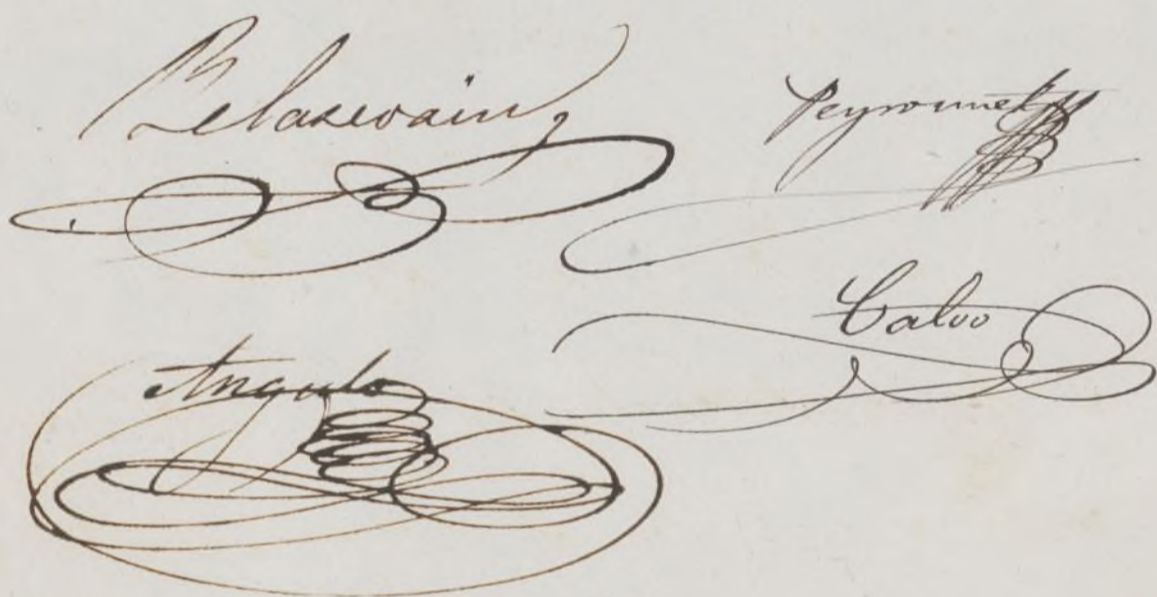 Belascoain
Peyronnet
Calvo
Angulo